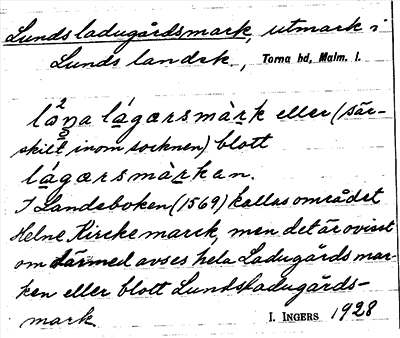 Lunds ladugårdsmark, utmark i
Lunds landsk, Torna hd, Malm. l.
lágærsmàrk eller (sär-
skilt inom socknen) blott
lágærsmàrkan.
I Landsboken (1569) kallas området
Helne Kircke marck, men det är ovisst
om därmed avses hela Ladugårds mar-
ken eller blott Lunds ladugårds-
mark.
I. INGERS 1928